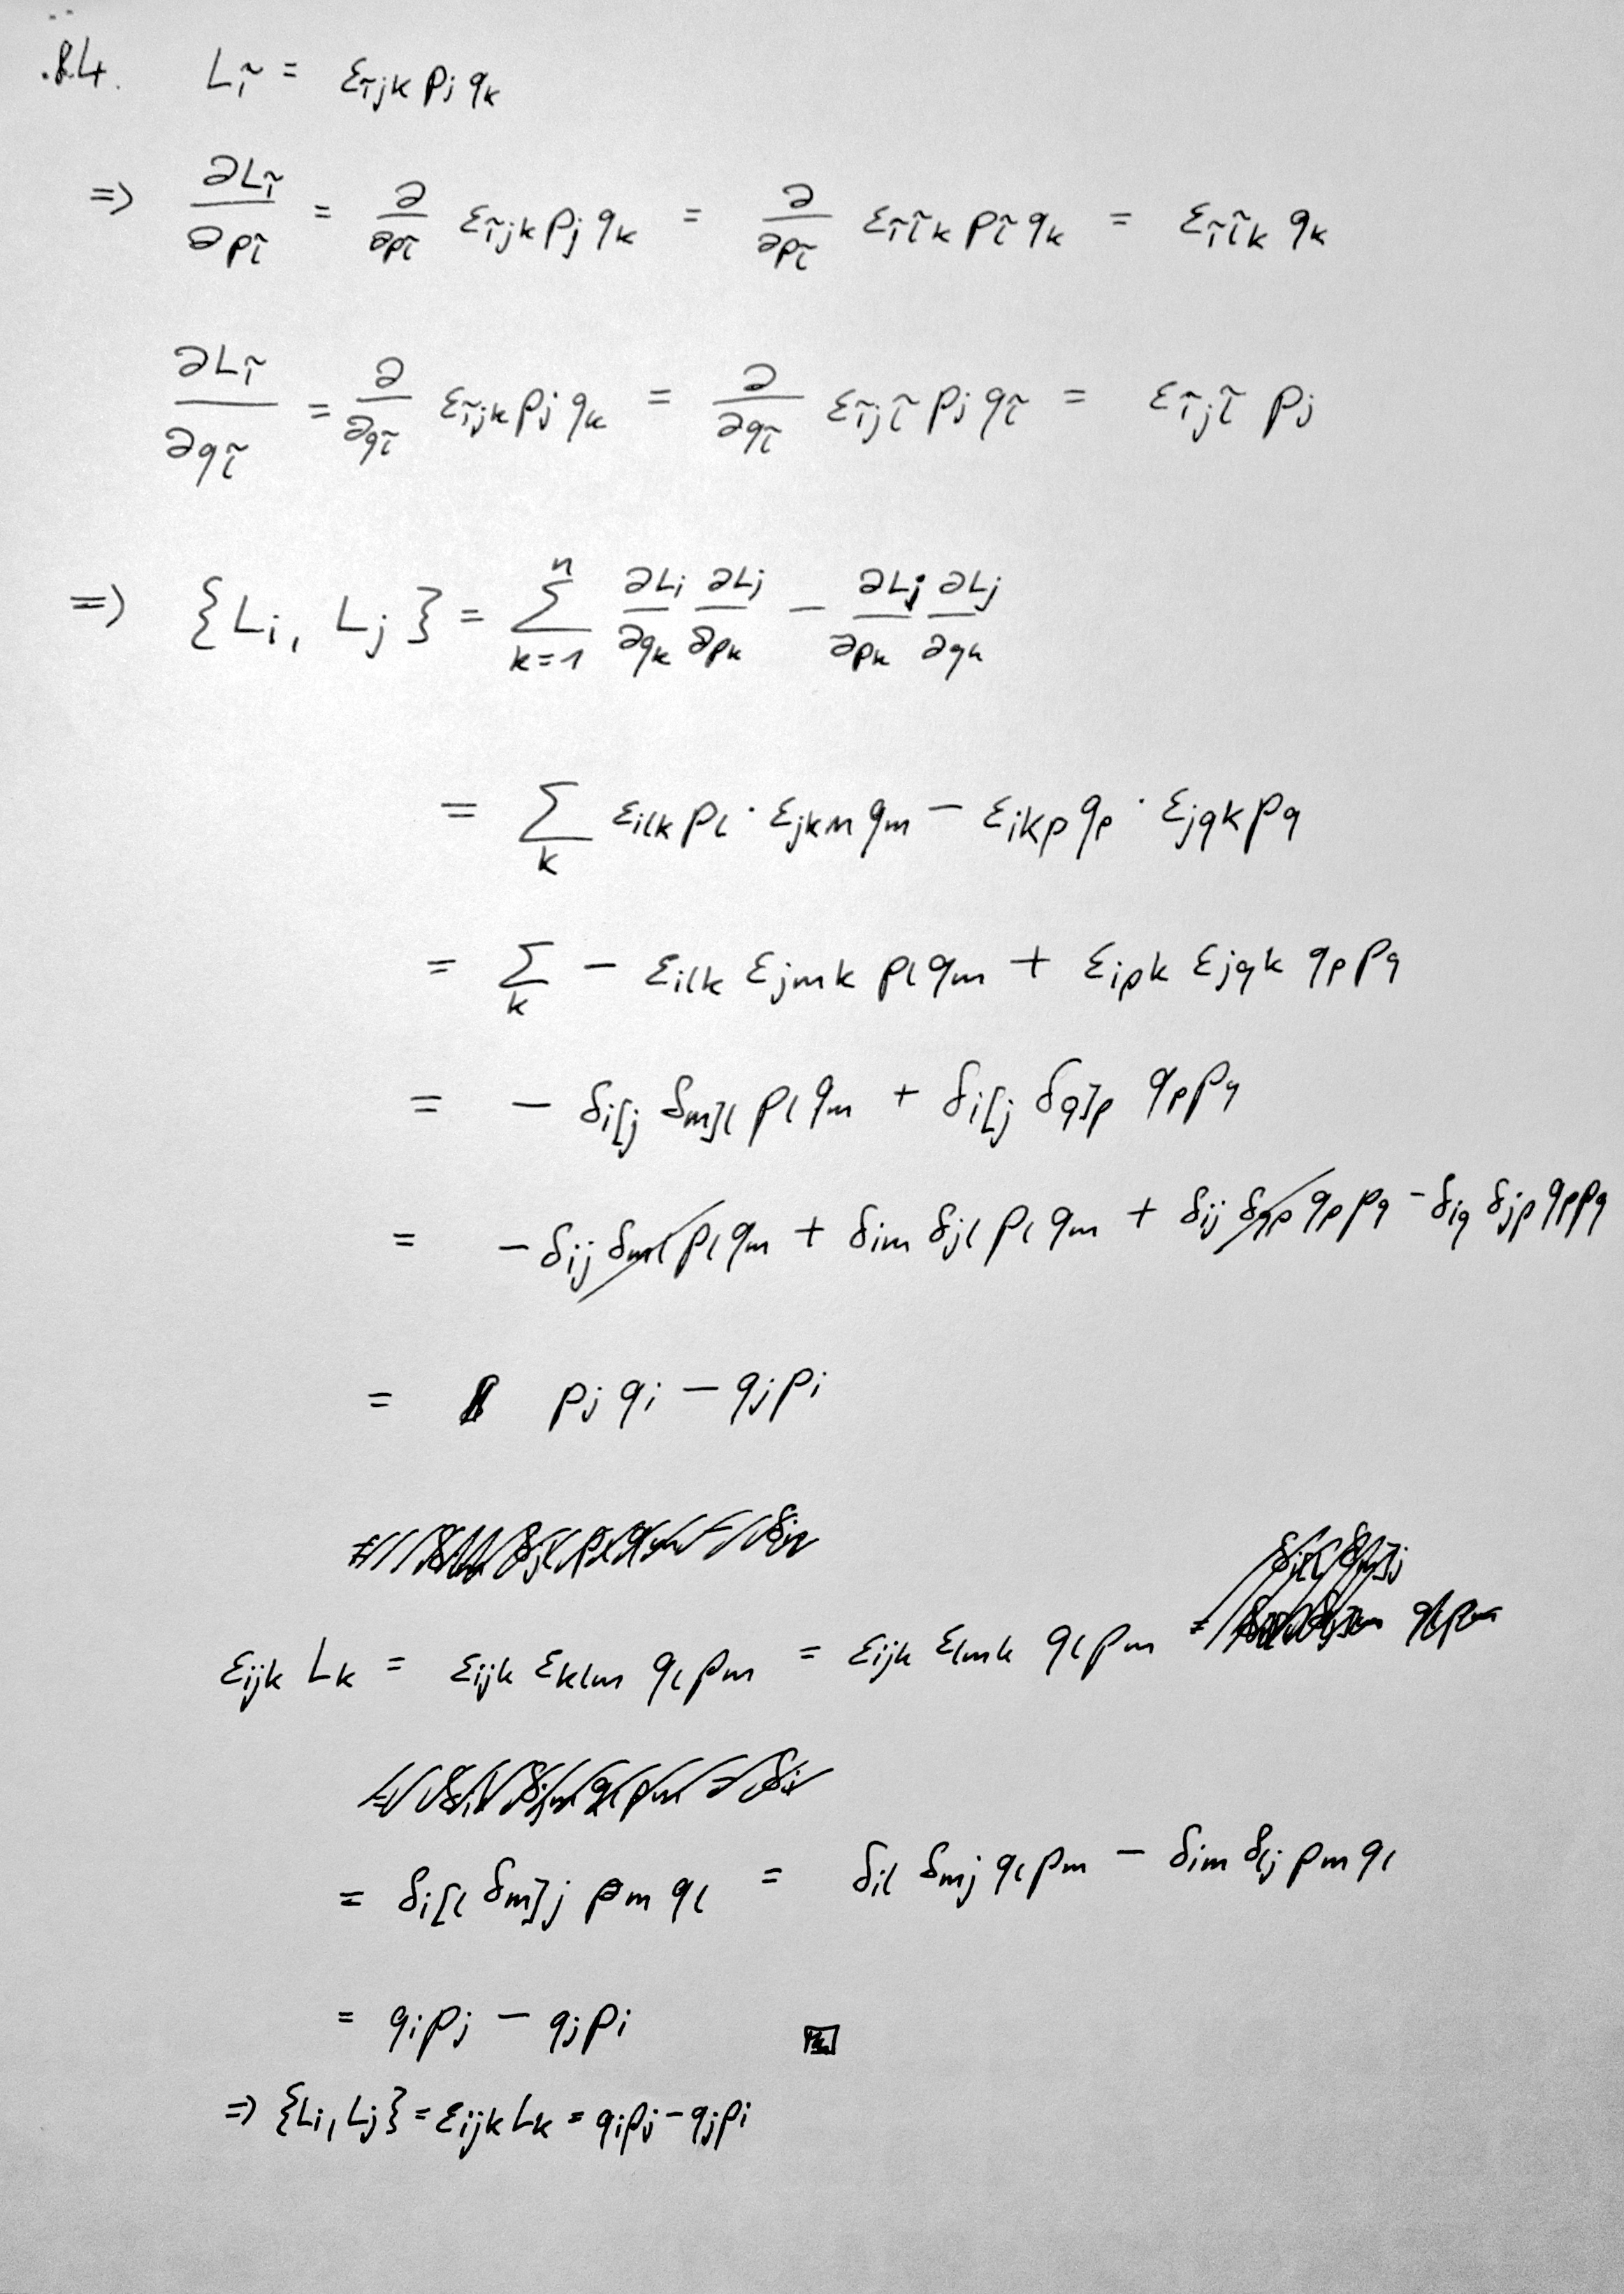 .8.4. L_ĩ = ε_ĩjk p_j q_k
=> ∂L_ĩ/∂p_l̃ = ∂/∂p_l̃ ε_ĩjk p_j q_k = ∂/∂p_l̃ ε_ĩl̃k p_l̃ q_k = ε_ĩl̃k q_k
∂L_ĩ/∂q_l̃ = ∂/∂q_l̃ ε_ĩjk p_j q_k = ∂/∂q_l̃ ε_ĩjl̃ p_j q_l̃ = ε_ĩjl̃ p_j
=> {L_i, L_j} = Σ_{k=1}^{n} ∂L_i/∂q_k ∂L_j/∂p_k − ∂L_j/∂p_k ∂L_j/∂q_k
= Σ_k ε_ilk p_l · ε_jkm q_m − ε_ikp q_p · ε_jqk p_q
= Σ_k − ε_ilk ε_jmk p_l q_m + ε_ipk ε_jqk q_p p_q
= − δ_i[j δ_m]l p_l q_m + δ_i[j δ_q]p q_p p_q
= − δ_ij δ_ml p_l q_m + δ_im δ_jl p_l q_m + δ_ij δ_qp q_p p_q − δ_iq δ_jp q_p p_q
= p_j q_i − q_j p_i
ε_ijk L_k = ε_ijk ε_klm q_l p_m = ε_ijk ε_lmk q_l p_m
= δ_i[l δ_m]j p_m q_l = δ_il δ_mj q_l p_m − δ_im δ_lj p_m q_l
= q_i p_j − q_j p_i
=> {L_i, L_j} = ε_ijk L_k = q_i p_j − q_j p_i